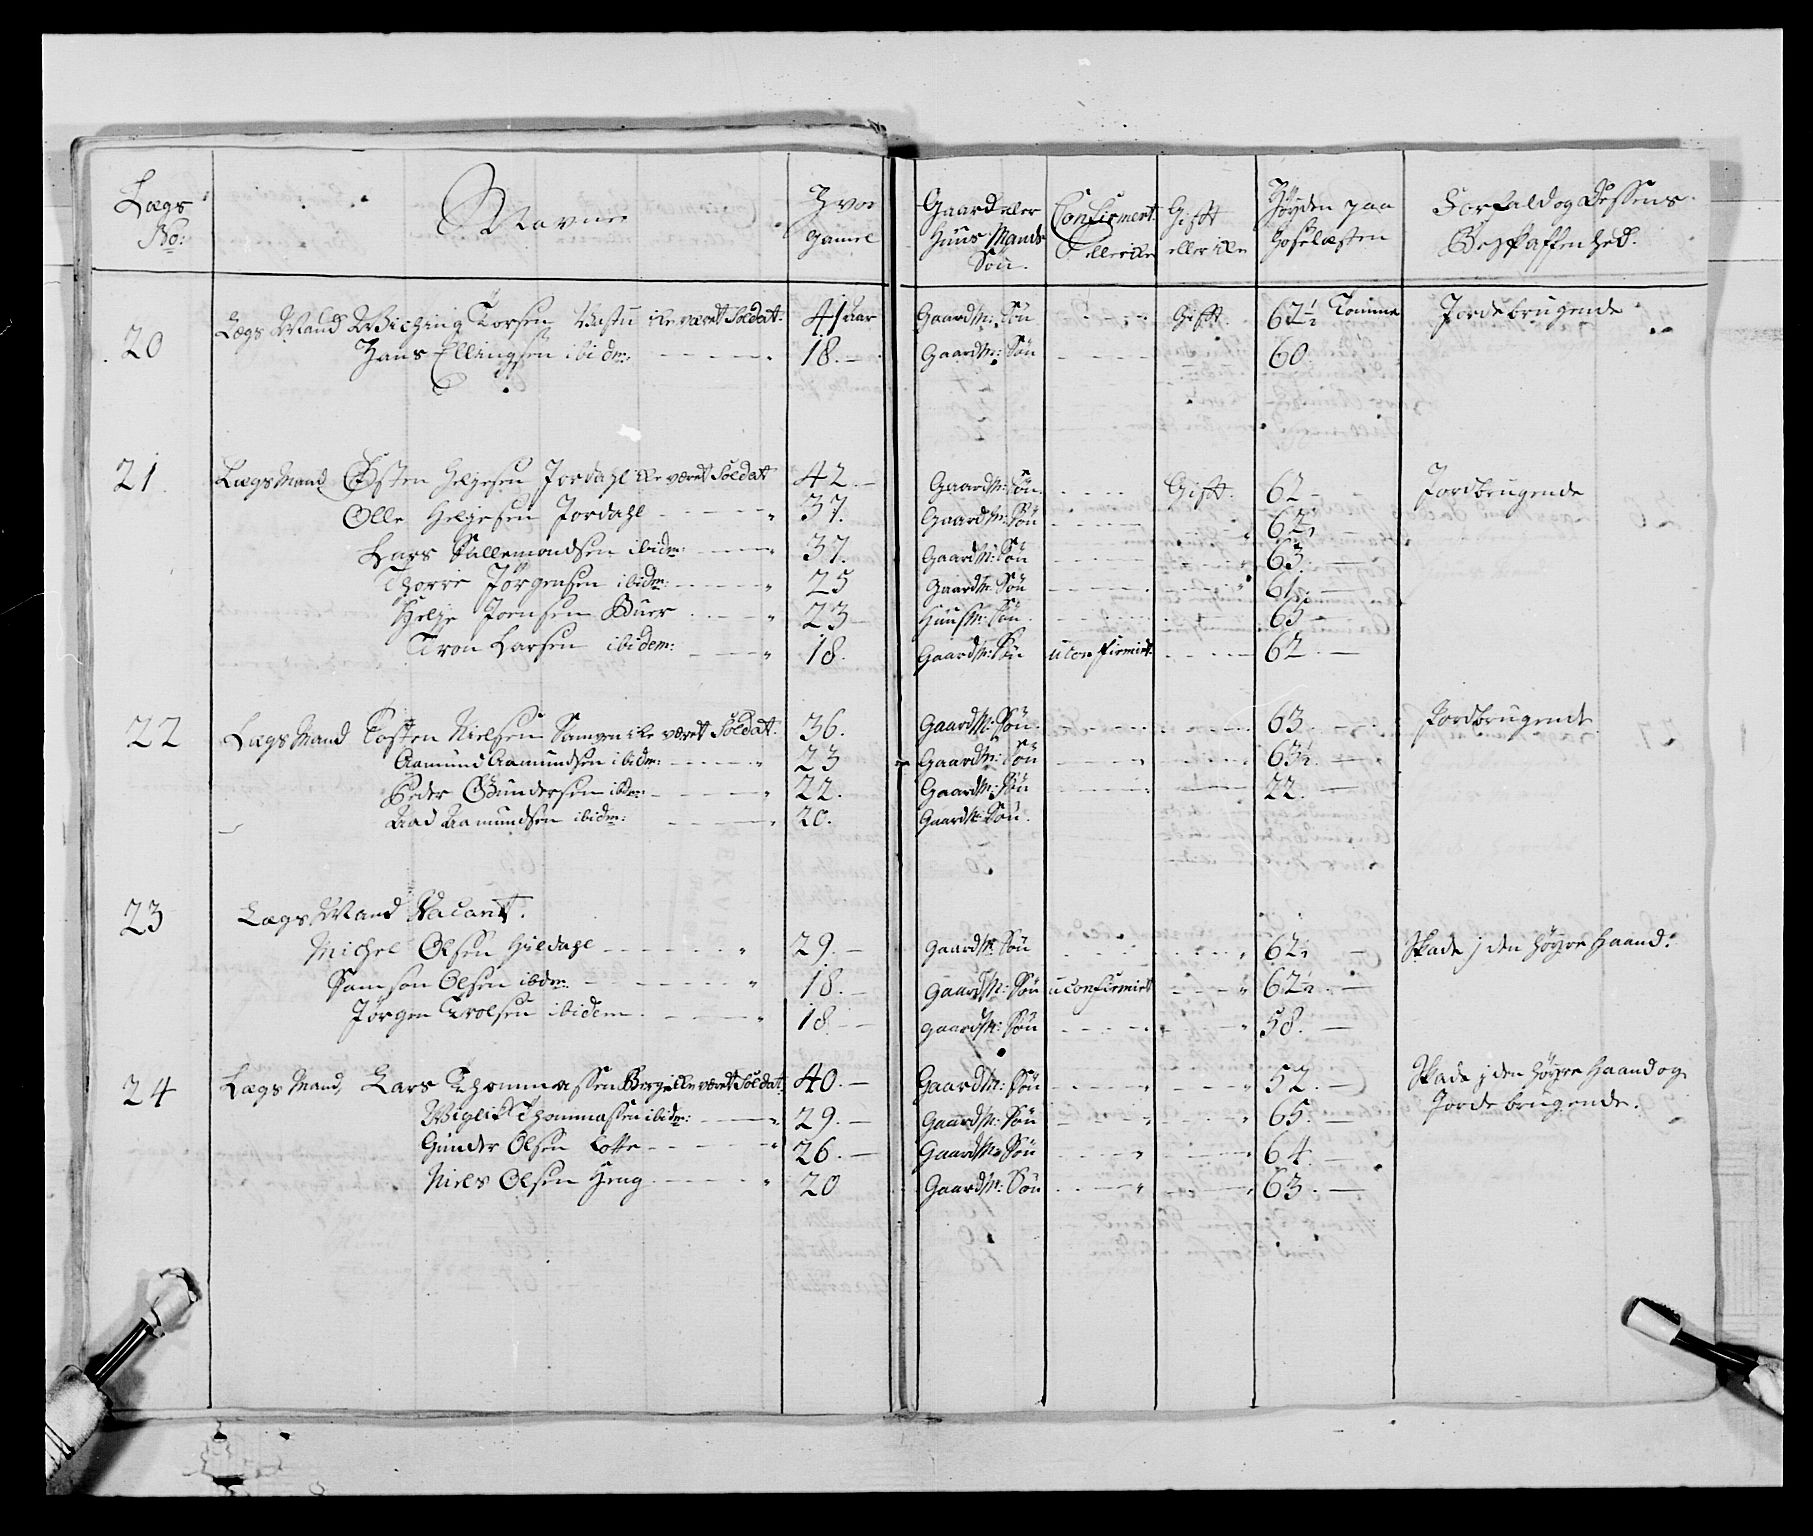 Lægs No: | Navne | Hvor gamel | Gaard eller Huus Mands Søn. | Confirmert eller ikke | Gift eller ikke | Høyden paa Hoselæsten | Forfald og Dessens Beskaffenhed.
20 Lægs Mand Wiching Torsen ikke været Soldat. 41 aar Gaardm: Søn Gift 62½ Tomme Jordebrugende
Hans Ellingsen ibidm: 18. Gaardm: Søn 60.
21. Lægs Mand Østen Helgesen Jordahl ikke været Soldat 42. Gaardm: Søn. Gift. 62 Jordbrugende
Olle Helgesen Jordahl 37. Gaardm: Søn 62½
Lars Sallemondsen ibidm: 37. Gaardm: Søn 63.
Thorre Jørgensen ibidm: 25 Gaardm: Søn 61½
Helge Joensen Buer 23 Huusm: Søn. 63
Tron Larsen ibidem: 18. Gaardm: Søn uconfirmirt. 62.
22 Lægs Mand Tosten Nielsen ikke været Soldat. 36. Gaardm: Søn. 63. Jordbrugende
Aamund Aamundsen ibidm: 23 Gaardm: Søn 63½.
Peder Gundersen ibdm: 22. Gaardm: Søn 22.
Aad Aamundsen ibidm: 20. Gaardm: Søn.
23 Lægs Mand Vacant.
Michel Olsen Hildahl 29. Gaardm: Søn 62½ Skade j den høyre Haand.
Samson Olsen ibdm: 18. Gaardm: Søn uconfirmirt 62½.
Jørgen Trolsen ibidem 18. Gaardm: Søn 58.
24 Lægs Mand, Lars Thommassen Berge ikke været Soldat. 40. Gaardm: Søn 52. Skade j den høyre Haand og
Jorde brugende.
Wiglik Thommassen ibidm: 29. Gaardm: Søn 65.
Gunder Olsen Lotte 26. Gaardm: Søn 64.
Niels Olsen Heng 20 Gaardm: Søn 63.